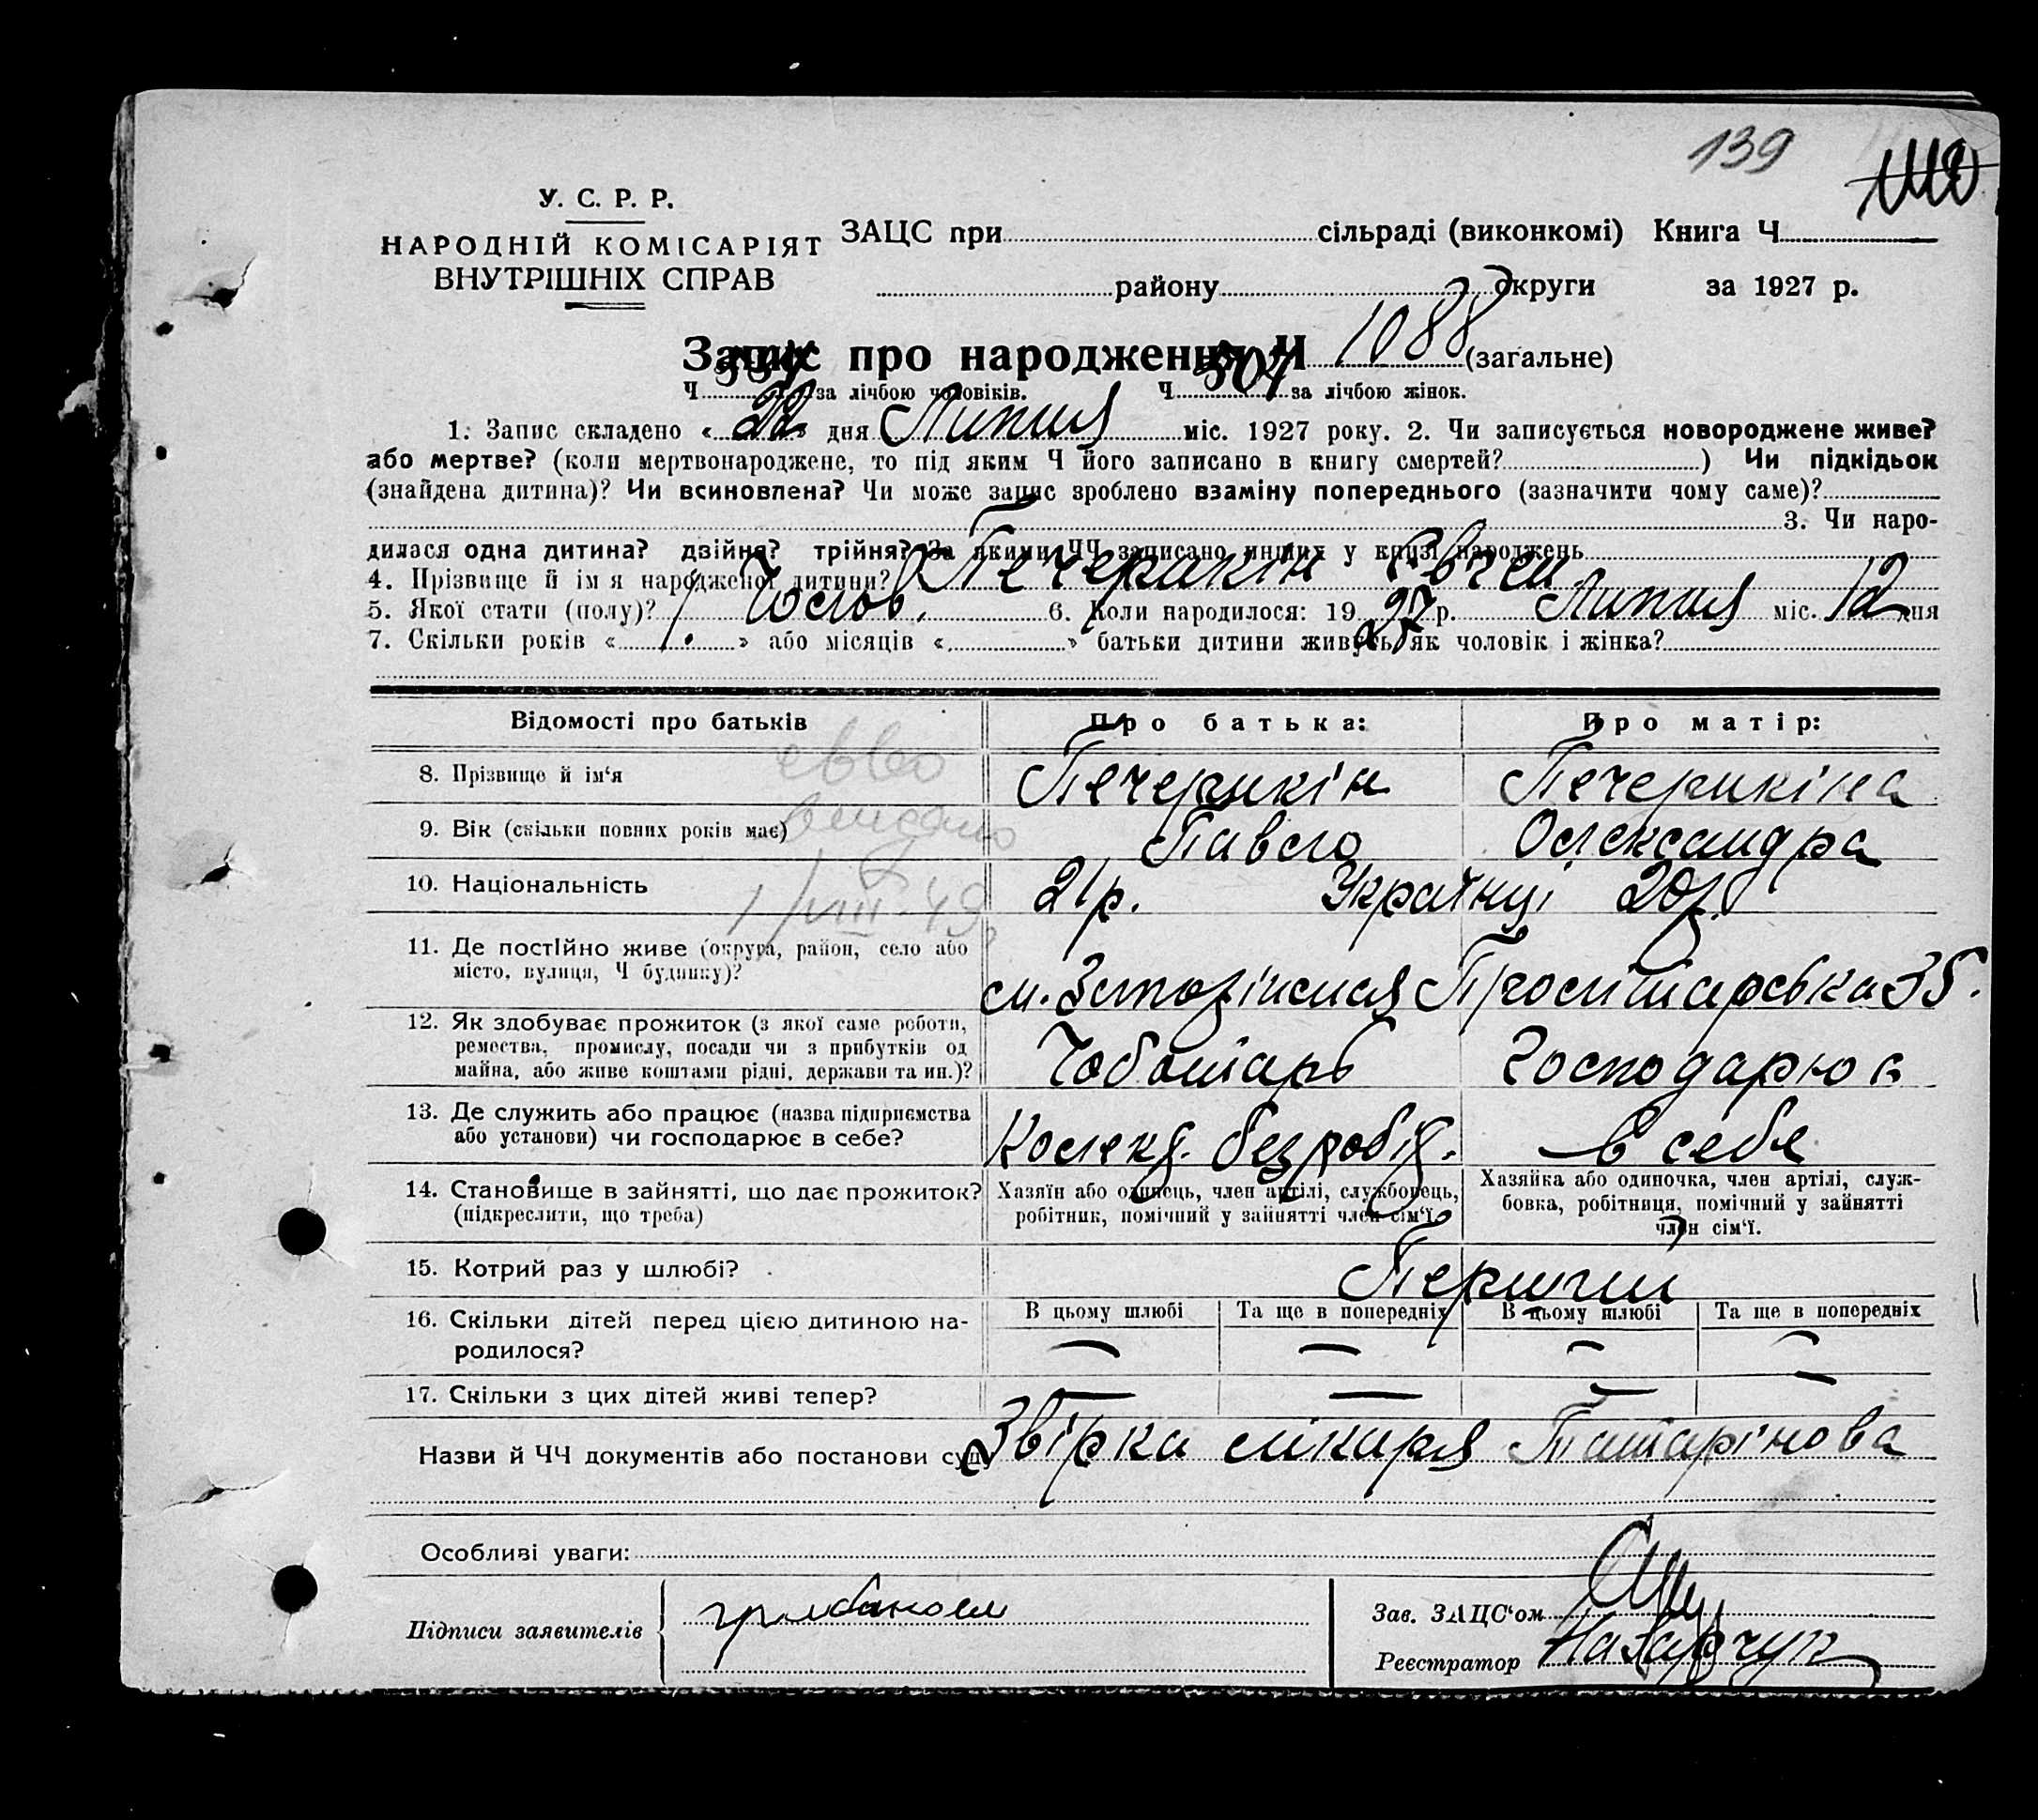 139
У. С. Р. Р.
НАРОДНІЙ КОМІСАРІЯТ
ВНУТРІШНІХ СПРАВ
ЗАЦС при сільраді (виконкомі) Книга Ч
району округи за 1927 р.
Запис про народження Ч 1088 (загальне)
Ч за лічбою чоловіків. Ч 504 за лічбою жінок.
1. Запис складено « 22 » дня Липня міс. 1927 року. 2. Чи записується новороджене живе?
або мертве? (коли мертвонароджене, то під яким Ч його записано в книгу смертей? ) Чи підкідьок
(знайдена дитина)? Чи всиновлена? Чи може запис зроблено взаміну попереднього (зазначити чому саме)?
3. Чи наро-
дилася одна дитина? двійня? трійня? За якими ЧЧ записано инших у книзі народжень
4. Прізвище й ім я народженої дитини? Печерикін
5. Якої стати (полу)? Чолов. 6. Коли народилося: 19 27 р. Липня міс. 12 дня
7. Скільки років « 1 » або місяців « » батьки дитини живуть як чоловік і жінка?
Відомості про батьків Про батька: Про матір:
8. Прізвище й ім'я Печерикін Печерикіна
9. Вік (скільки повних років має) Павло Олександра
10. Національність 21р. Українці 20р.
1/VIII-49
11. Де постійно живе (округа, район, село або
місто, вулиця, Ч будинку)? 35.
12. Як здобуває прожиток (з якої саме роботи,
ремества, промислу, посади чи з прибутків од
майна, або живе коштами рідні, держави та ин.)? Чоботарь Господарює
13. Де служить або працює (назва підприємства
або установи) чи господарює в себе? Колект. безробіт. в себе
14. Становище в зайнятті, що дає прожиток?
(підкреслити, що треба)
Хазяїн або одинець, член артілі, службовець,
робітник, помічний у зайнятті член сім'ї.
Хазяйка або одиночка, член артілі, служ-
бовка, робітниця, помічний у зайнятті
член сім'ї.
15. Котрий раз у шлюбі? Перший
16. Скільки дітей перед цією дитиною на-
родилося?
В цьому шлюбі Та ще в попередніх В цьому шлюбі Та ще в попередніх
— — — —
17. Скільки з цих дітей живі тепер? — — — —
Назви й ЧЧ документів або постанови суду Звірка лікаря Татарінова
Особливі уваги:
Підписи заявителів
Зав. ЗАЦС'ом
Реєстратор Назарчук